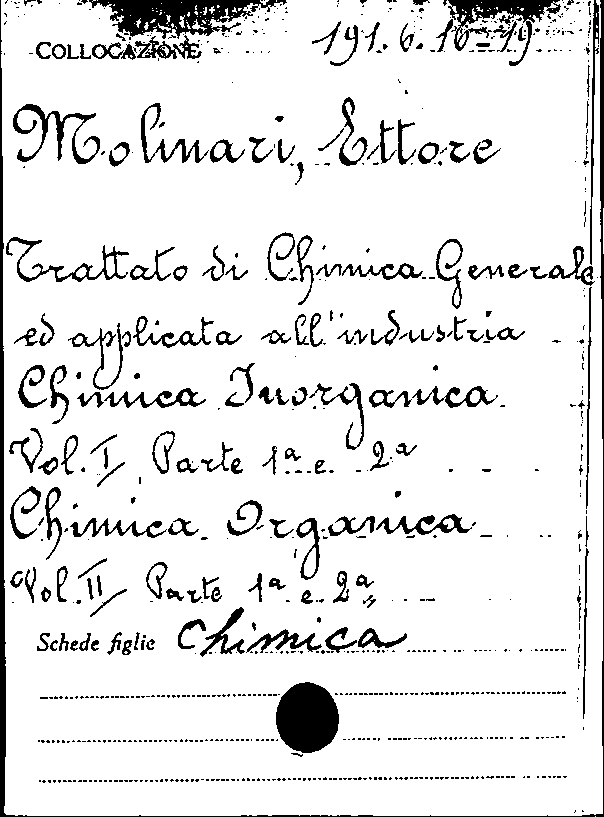 COLLOCAZIONE 191.6.16-19
Molinari, Ettore
Trattato di Chimica Generale
ed applicata all'industria
Chimica Inorganica
Vol. I Parte 1ª e 2ª
Chimica Organica
Vol. II Parte 1ª e 2ª
Schede figlie Chimica